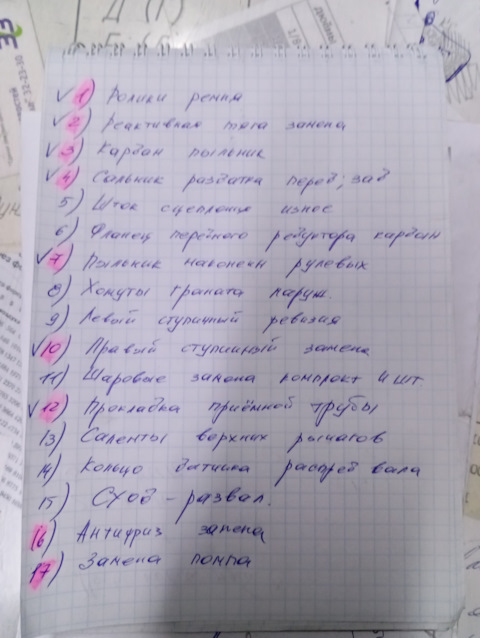 ✓ 1) Ролики ремня
✓ 2) Реактивная тяга замена
✓ 3) Кардан пыльник
✓ 4) Сальник раздатка перед; зад
5) Шток сцепления износ
6) Фланец переднего редуктора кардан
✓ 7) Пыльник наконечн рулевых
8) Хомуты граната наруж.
9) Левый ступичный ревизия
✓ 10) Правый ступичный замена
11) Шаровые замена комплект 4 шт
✓ 12) Прокладка приёмной трубы
13) Саленты верхних рычагов
14) Кольцо датчика распред вала
15) Сход - развал.
16) Антифриз замена
17) Замена помпа